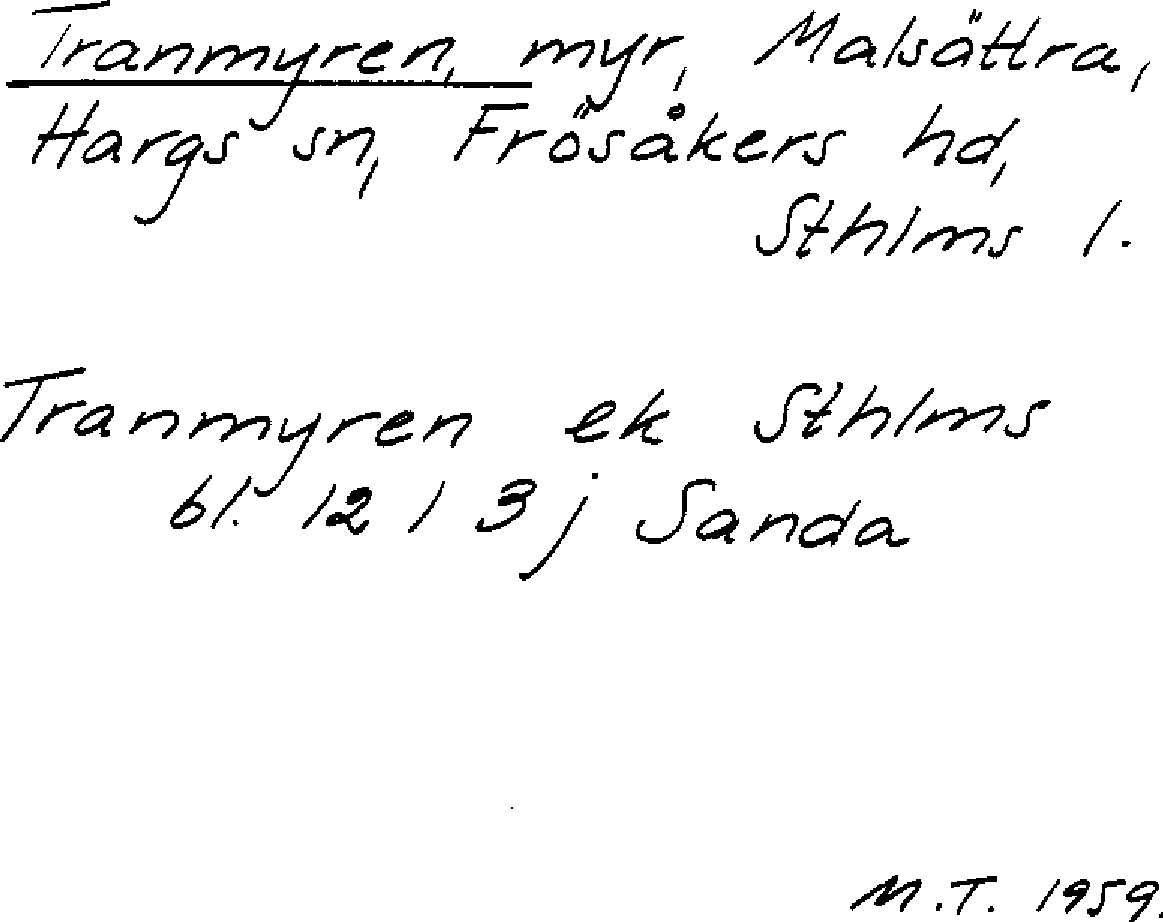 Tranmyren, myr, Malsättra,
Hargs sn, Frösåkers hd,
Sthlms l.
Tranmyren ek Sthlms
bl. 12 I 3 j Sanda
M.T. 1959.